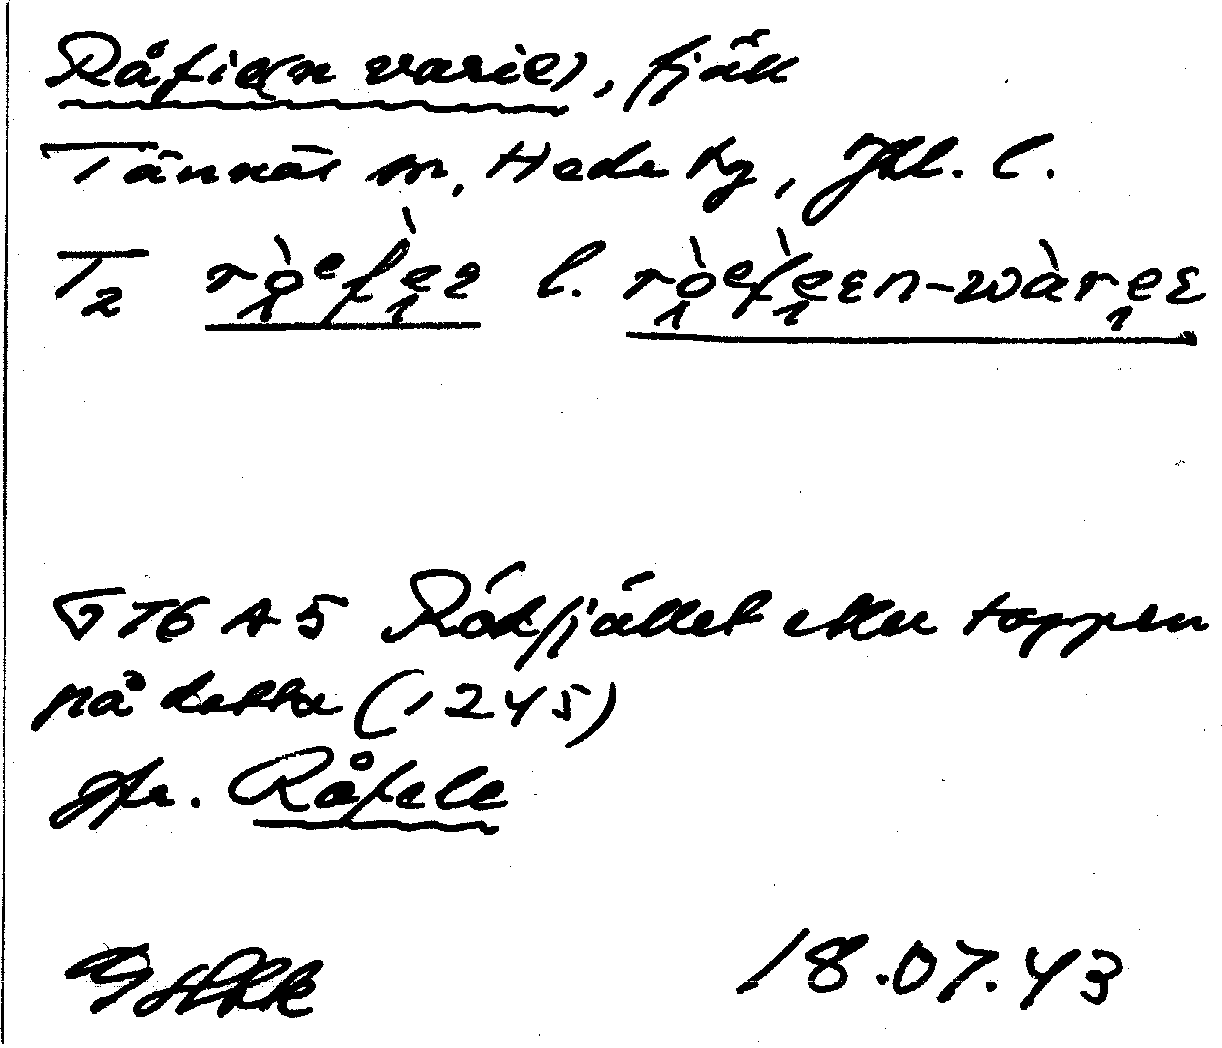 Råfie(n varie), fjäll
Tännäs sn, Hede tg, Jhl. l.
T₂ ròefee l. ròefeen-wàree
GT6 A5 Rödfjället eller toppen
på detta (1245)
jfr. Råfele
18.07.43